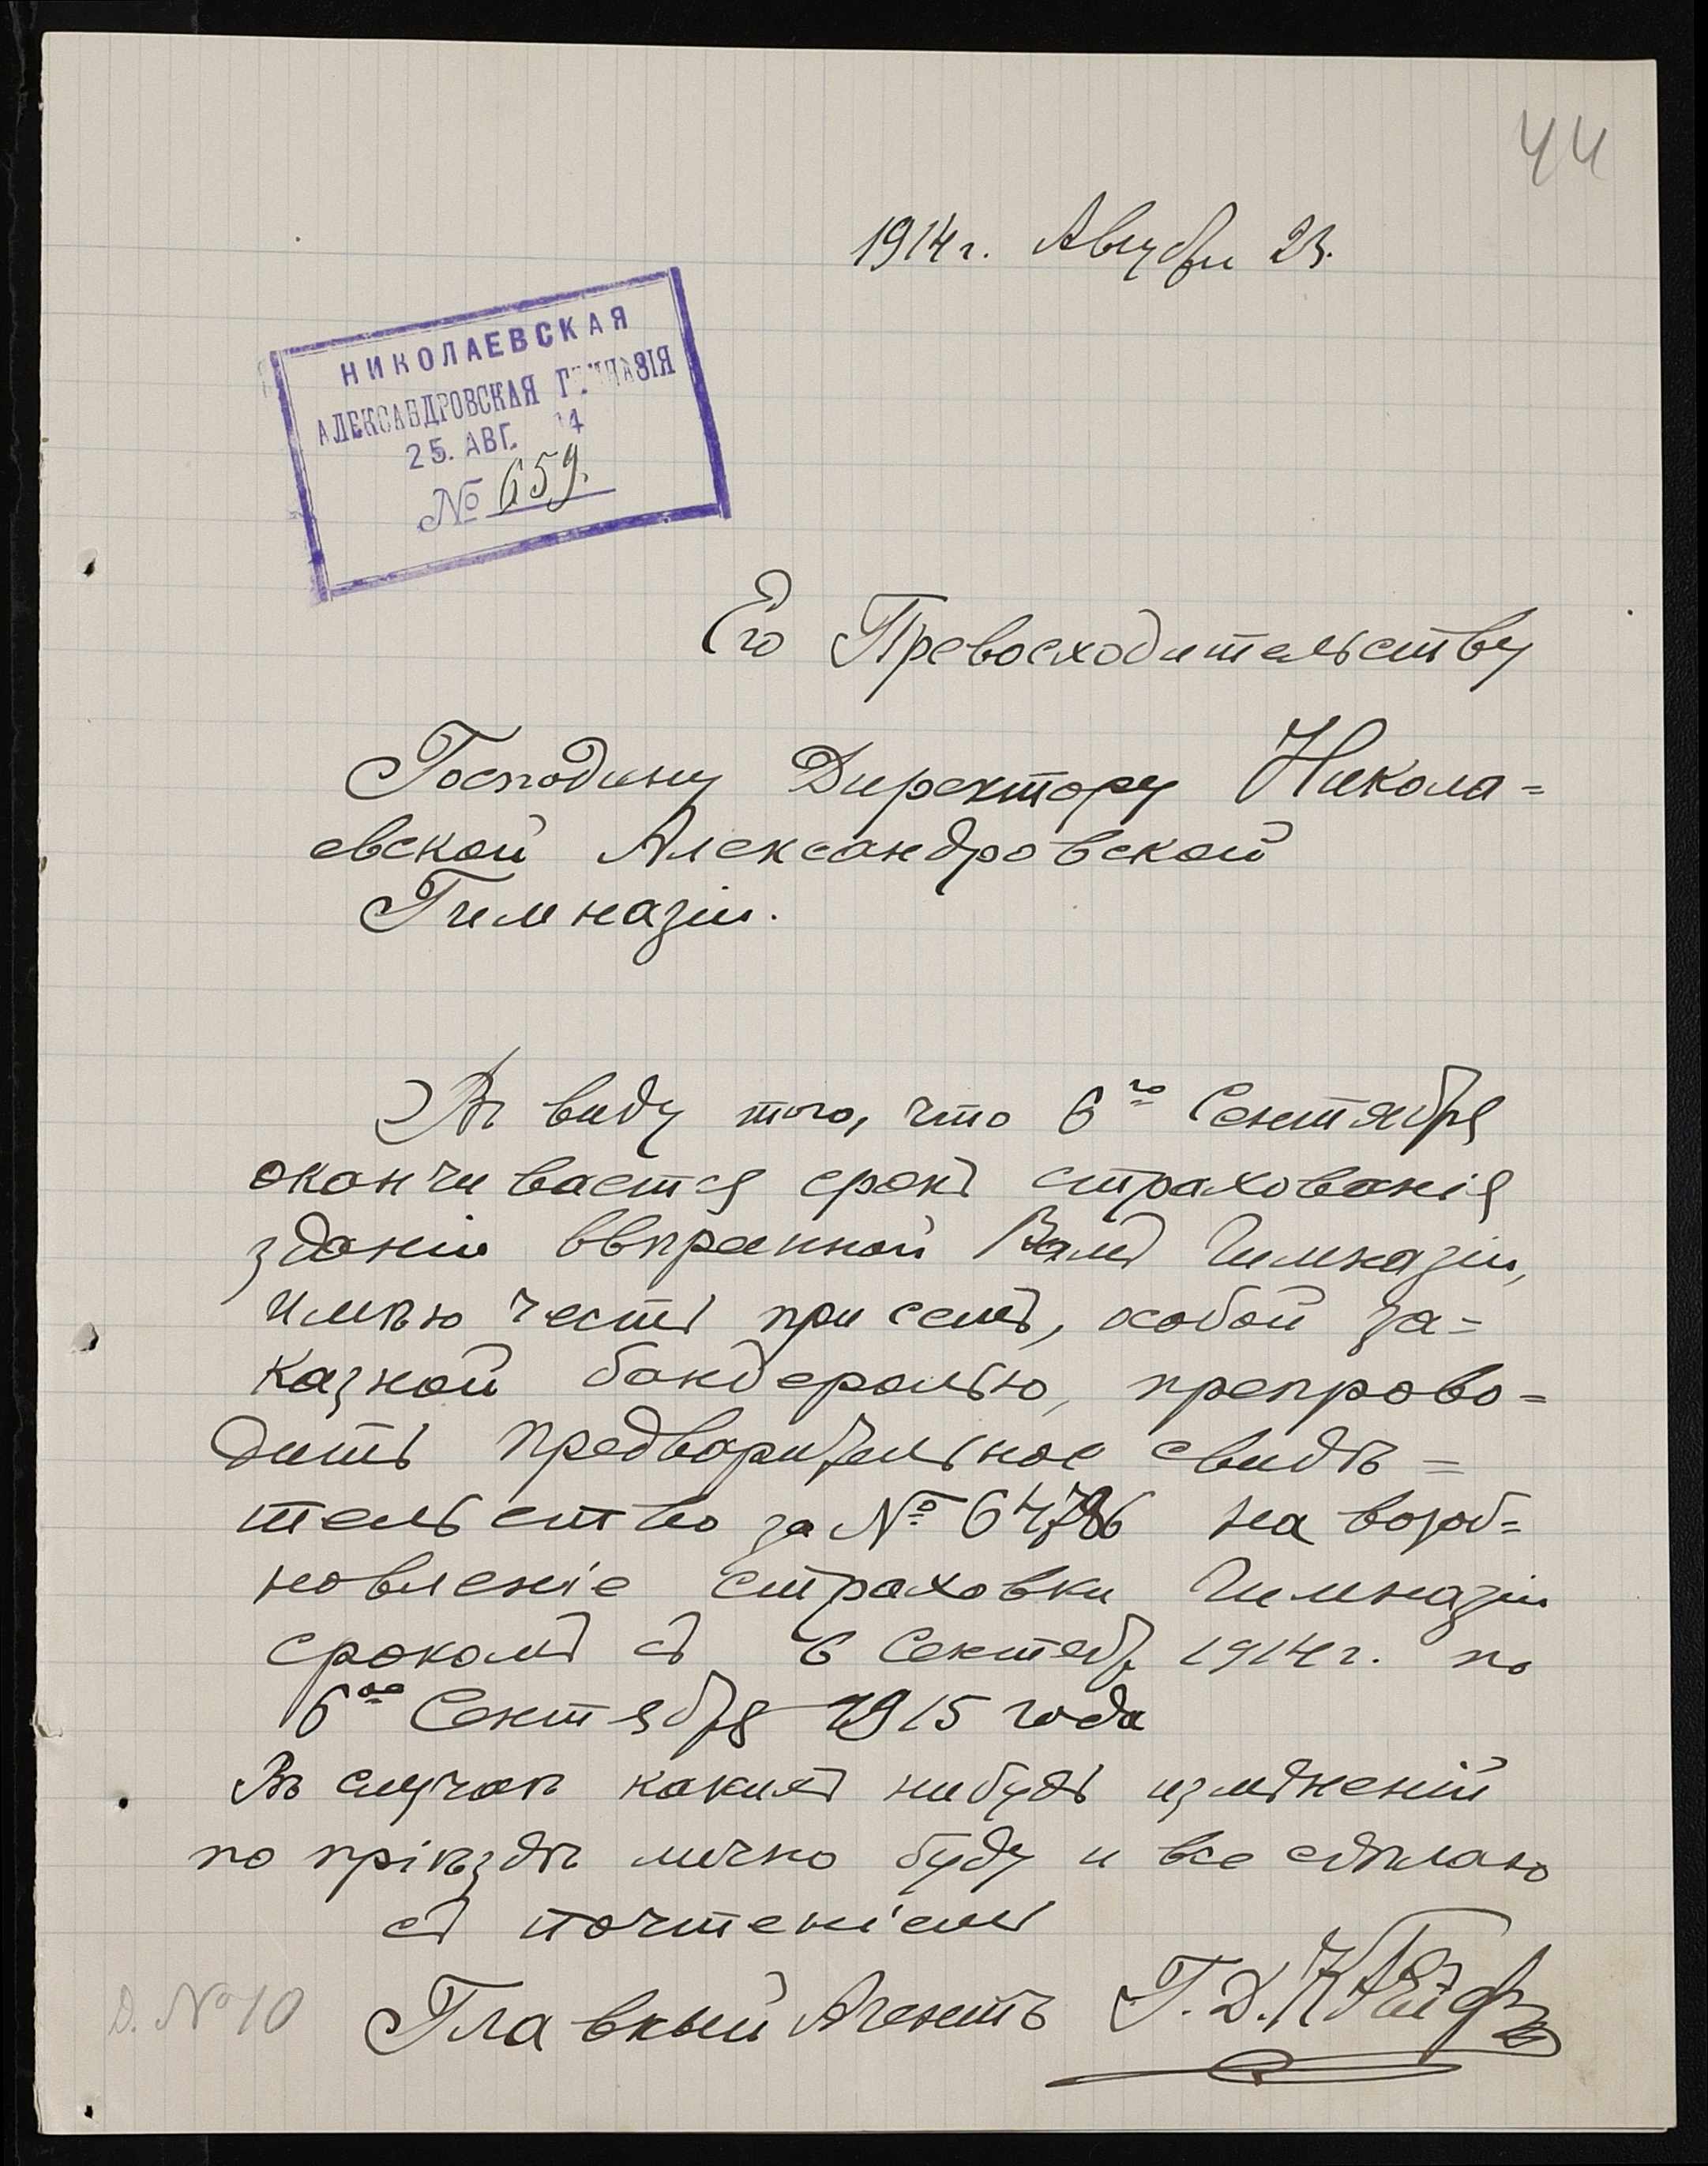 44
1914 г. Августа 23.
НИКОЛАЕВСКАЯ
АЛЕКСАНДРОВСКАЯ ГИМНАЗІЯ
25. АВГ. 14
№ 659.
Его Превосходительству
Господину Директору Никола=
евской Александровской
Гимназіи.
Въ виду того, что 6го Сентября
оканчивается срокъ страхованія
зданія ввѣренной Вамъ Гимназіи,
имѣю честь при семъ, особой за=
казной бандеролью, препрово=
дить предварительное свидѣ=
тельство за № на возоб=
новленіе страховки Гимназіи
срокомъ съ 6 Сентяб. 1914 г. по
6ое Сентября 1915 года
Въ случаѣ какихъ нибудь измѣненій
по пріѣздѣ лично буду и все сдѣлаю
съ почтеніемъ
Главный Агентъ Г. Д.
Д. № 10